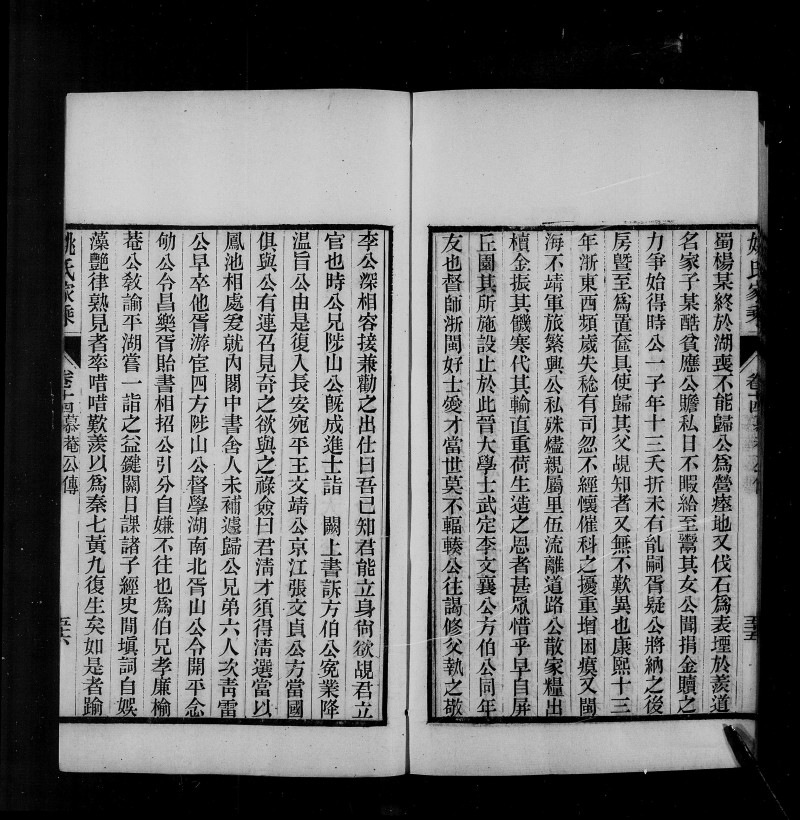 蜀楊某終於湖喪不能歸公爲營瘞地又伐石爲表堙於羨道
名家子某酷貧應公贍私日不暇給至鬻其女公聞捐金贖之
力爭始得時公一子年十三夭折未有胤嗣胥疑公將納之後
房曁至爲置奩具使歸其父覘知者又無不歎異也康熙十三
年浙東西頻歲失稔有司忽不經懷催科之擾重增困瘼又閩
海不靖軍旅繁興公私殊燼親屬里伍流離道路公散家糧出
櫝金振其饑寒代其輸直重荷生造之恩者甚眾惜乎早自屏
丘園其所施設止於此晉大學士武定李文襄公方伯公同年
友也督師浙閩好士愛才當世莫不輻輳公往謁修父執之敬
李公深相容接兼勸之出仕曰吾已知君能立身尙欲覘君立
官也時公兄陟山公旣成進士詣 闕上書訴方伯公寃業降
溫旨公由是復入長安宛平王文靖公京江張文貞公方當國
俱與公有連召見奇之欲與之祿僉曰君淸才須得淸選當以
鳳池相處爰就內閣中書舍人未補遽歸公兄弟六人次靑雷
公早卒他胥游宦四方陟山公督學湖南北胥山公令開平念
劬公令昌樂胥貽書相招公引分自嫌不往也爲伯兄孝廉榆
菴公敎諭平湖嘗一詣之益鍵關日課諸子經史間塡詞自娛
藻艷律熟見者率唶唶歎羨以爲秦七黃九復生矣如是者踰
姚氏家乘
卷十四慕菴公傳
五六